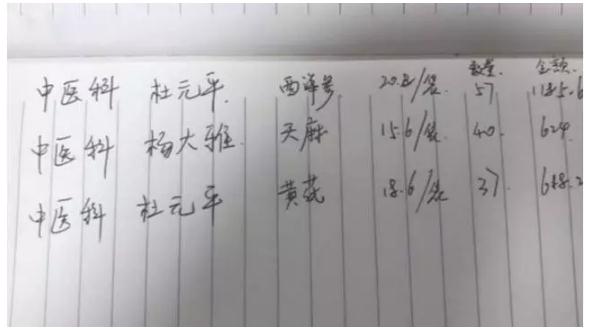 数量. 金额.
中医科 杜元平. 西洋参 20.8/袋. 57 1185.6
中医科 杨大雅. 天麻 15.6/袋. 40. 624.
中医科 杜元平 黄芪 18.6/袋 37. 688.2